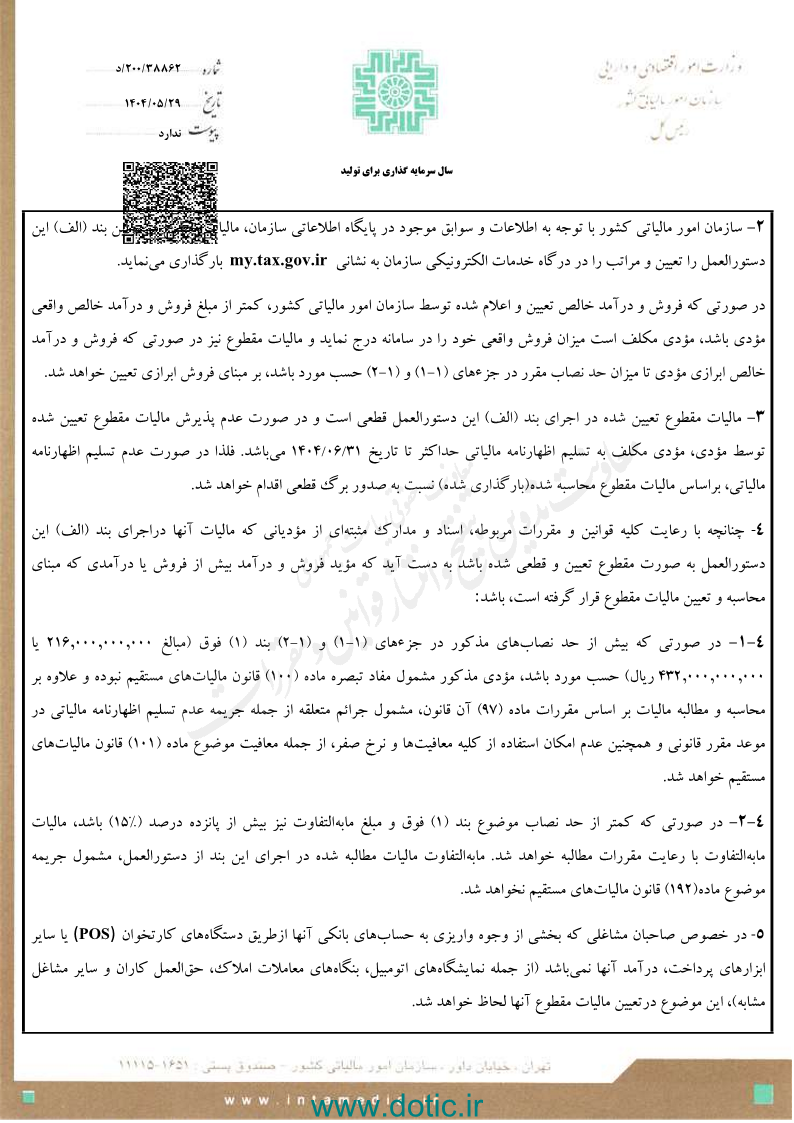 وزارت امور اقتصادی و دارایی
سازمان امور مالیاتی کشور
رئیس کل
شماره ۲۰۰/۳۸۸۶۲/د
تاریخ ۱۴۰۴/۰۵/۲۹
پیوست ندارد
سال سرمایه گذاری برای تولید
۲- سازمان امور مالیاتی کشور با توجه به اطلاعات و سوابق موجود در پایگاه اطلاعاتی سازمان، مالیات بند (الف) این
دستورالعمل را تعیین و مراتب را در درگاه خدمات الکترونیکی سازمان به نشانی my.tax.gov.ir بارگذاری می‌نماید.
در صورتی که فروش و درآمد خالص تعیین و اعلام شده توسط سازمان امور مالیاتی کشور، کمتر از مبلغ فروش و درآمد خالص واقعی
مؤدی باشد، مؤدی مکلف است میزان فروش واقعی خود را در سامانه درج نماید و مالیات مقطوع نیز در صورتی که فروش و درآمد
خالص ابرازی مؤدی تا میزان حد نصاب مقرر در جزءهای (۱-۱) و (۱-۲) حسب مورد باشد، بر مبنای فروش ابرازی تعیین خواهد شد.
۳- مالیات مقطوع تعیین شده در اجرای بند (الف) این دستورالعمل قطعی است و در صورت عدم پذیرش مالیات مقطوع تعیین شده
توسط مؤدی، مؤدی مکلف به تسلیم اظهارنامه مالیاتی حداکثر تا تاریخ ۱۴۰۴/۰۶/۳۱ می‌باشد. فلذا در صورت عدم تسلیم اظهارنامه
مالیاتی، براساس مالیات مقطوع محاسبه شده(بارگذاری شده) نسبت به صدور برگ قطعی اقدام خواهد شد.
٤- چنانچه با رعایت کلیه قوانین و مقررات مربوطه، اسناد و مدارک مثبته‌ای از مؤدیانی که مالیات آنها دراجرای بند (الف) این
دستورالعمل به صورت مقطوع تعیین و قطعی شده باشد به دست آید که مؤید فروش و درآمد بیش از فروش یا درآمدی که مبنای
محاسبه و تعیین مالیات مقطوع قرار گرفته است، باشد:
٤-۱- در صورتی که بیش از حد نصاب‌های مذکور در جزءهای (۱-۱) و (۱-۲) بند (۱) فوق (مبالغ ۲۱۶,۰۰۰,۰۰۰,۰۰۰ یا
۴۳۲,۰۰۰,۰۰۰,۰۰۰ ریال) حسب مورد باشد، مؤدی مذکور مشمول مفاد تبصره ماده (۱۰۰) قانون مالیات‌های مستقیم نبوده و علاوه بر
محاسبه و مطالبه مالیات بر اساس مقررات ماده (۹۷) آن قانون، مشمول جرائم متعلقه از جمله جریمه عدم تسلیم اظهارنامه مالیاتی در
موعد مقرر قانونی و همچنین عدم امکان استفاده از کلیه معافیت‌ها و نرخ صفر، از جمله معافیت موضوع ماده (۱۰۱) قانون مالیات‌های
مستقیم خواهد شد.
٤-۲- در صورتی که کمتر از حد نصاب موضوع بند (۱) فوق و مبلغ مابه‌التفاوت نیز بیش از پانزده درصد (۱۵٪) باشد، مالیات
مابه‌التفاوت با رعایت مقررات مطالبه خواهد شد. مابه‌التفاوت مالیات مطالبه شده در اجرای این بند از دستورالعمل، مشمول جریمه
موضوع ماده(۱۹۲) قانون مالیات‌های مستقیم نخواهد شد.
٥- در خصوص صاحبان مشاغلی که بخشی از وجوه واریزی به حساب‌های بانکی آنها ازطریق دستگاه‌های کارتخوان (POS) یا سایر
ابزارهای پرداخت، درآمد آنها نمی‌باشد (از جمله نمایشگاه‌های اتومبیل، بنگاه‌های معاملات املاک، حق‌العمل کاران و سایر مشاغل
مشابه)، این موضوع درتعیین مالیات مقطوع آنها لحاظ خواهد شد.
تهران ، خیابان داور ، سازمان امور مالیاتی کشور - صندوق پستی : ۱۶۵۱-۱۱۱۱۵
www.intamedia.ir
www.dotic.ir